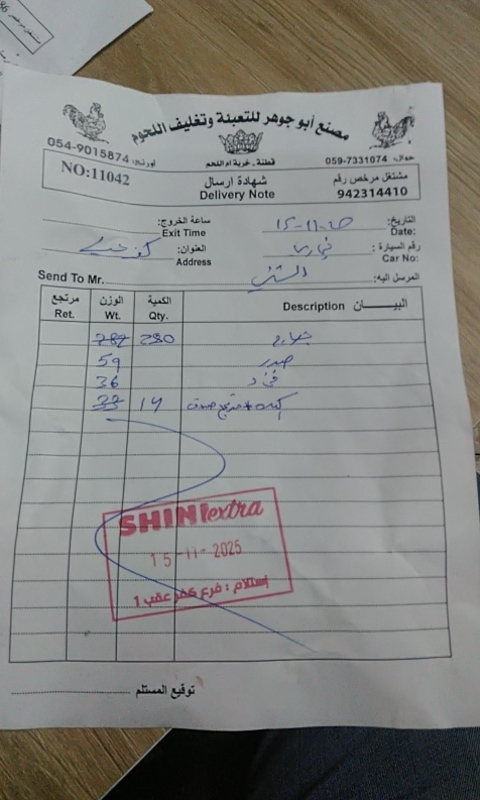 مصنع أبو جوهر للتعبئة وتغليف اللحوم
جوال: 059-7331074 قطنة . غربية ام اللحم 054-9015874
مشتغل مرخص رقم
942314410
شهادة ارسال
Delivery Note
NO:11042
التاريخ: 15-11-25
Date:
ساعة الخروج:
Exit Time
رقم السيارة :
Car No:
العنوان: كفر عقب
Address
المرسل اليه: الشني
Send To Mr.
البيــــان Description الكمية Qty. الوزن Wt. مرتجع Ret.
280 787
صدر 59
36
14
SHINI extra
15-11-2025
استلام : فرع كفر عقب 1
توقيع المستلم